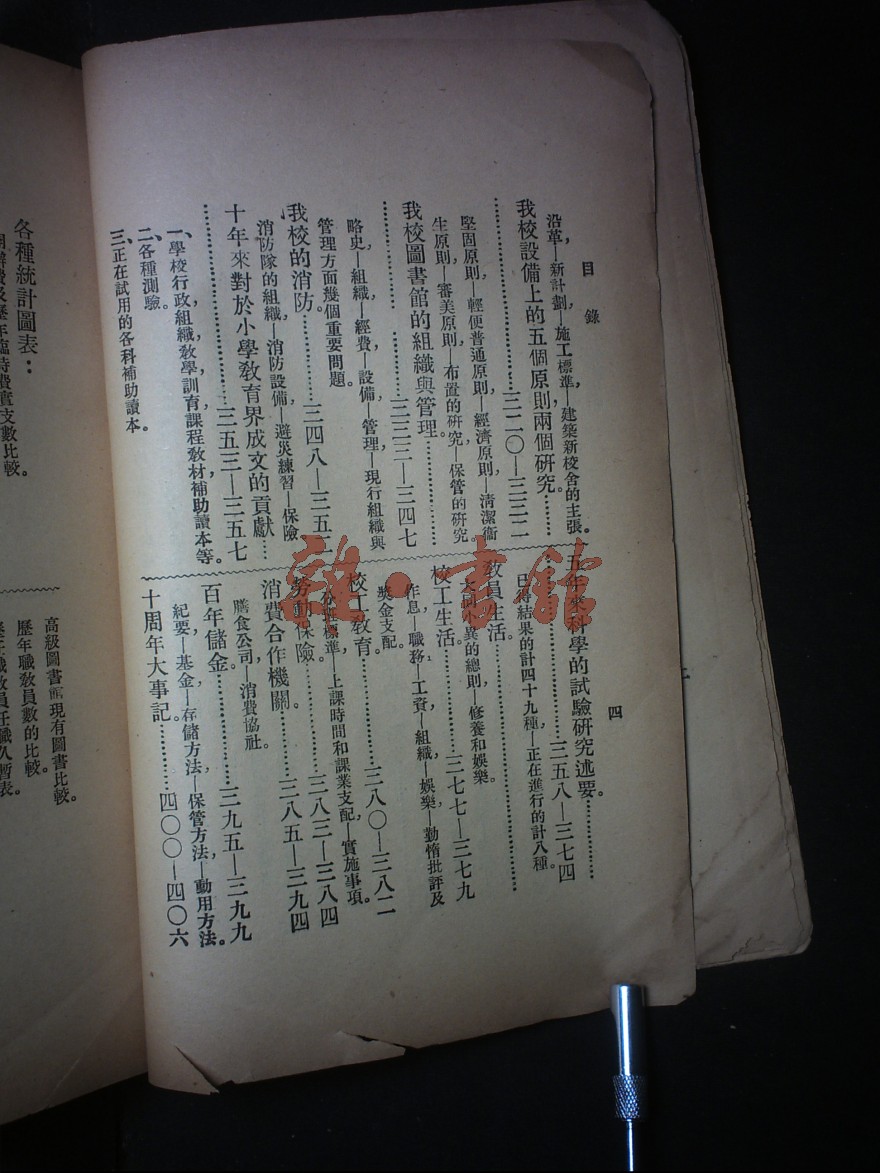 目錄
四
沿革—新計劃—施工標準—建築新校舍的主張。
我校設備上的五個原則兩個研究。
…………三二〇—三三二
堅固原則—輕便普通原則—經濟原則—清潔衞
生原則—審美原則—布置的研究—保管的研究。
我校圖書館的組織與管理。
…………三三三—三四七
略史—組織—經費—設備—管理—現行組織與
管理方面幾個重要問題。
我校的消防。…………三四八—三五二
消防隊的組織—消防設備—避災練習—保險
十年來對於小學教育界成文的貢獻……
…………三五三—三五七
一、學校行政組織,教學,訓育,課程,教材,補助讀本等。
二、各種測驗。
三、正在試用的各科補助讀本。
五年來科學的試驗研究述要。…………
…………三五八—三七四
已得結果的計四十九種,—正在進行的計八種。
教員生活。…………
大同小異的總則,—修養和娛樂。
校工生活。…………三七七—三七九
作息—職務—工資—組織—娛樂—勤惰批評及
獎金支配。
校工教育。…………三八〇—三八二
分組標準—上課時間和課業支配—實施事項。
勞動保險。…………三八三—三八四
消費合作機關。…………三八五—三九四
膳食公司—消費協社。
百年儲金。…………三九五—三九九
紀要—基金—存儲方法—保管方法,—動用方法。
十周年大事記。…………四〇〇—四〇六
各種統計圖表:
開辦費及歷年臨時費實支數比較。
高級圖書館現有圖書比較。
歷年職教員數的比較。
歷任職教員任職久暫表。
敦•書館